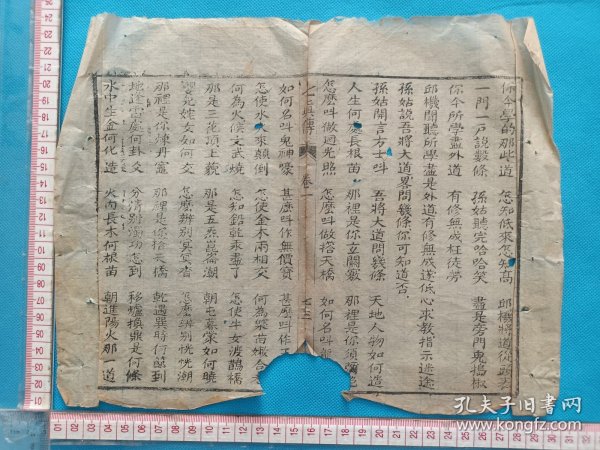 你今學的那些道 怎知低來怎知高 邱機將道從頭
一門一戶說數條 孫姑聽完哈哈笑 盡是旁門鬼搗椒
你今所學盡外道 有修無成枉徒勞
邱機聞聽所學盡是外道有修無成遂低心求教指示迷途
孫姑說吾將大道畧問幾條你可知道否
孫姑開言方士呌 吾將大道問幾條 天地人物如何造
人生何處長根苗 那裡是你玄關竅 那裡是你須彌
怎麼呌做迴光照 怎麼呌做搭天橋 如何名呌
卷一
七十三
如何名呌鬼神嚎 甚麼呌作無價寶 甚麼呌作
怎使水火來顛倒 怎使金木兩相交 何為黎苗嫩合
何為火候文武燒 怎知鉛乾汞盡了 怎使牛女渡鵲橋
那是三花頂上飄 那是五炁崑崙潮 朝屯暮蒙如何曉
嬰兒姹女如何交 怎麼辨別真霄杳 怎麼辨別恍恍潮
那裡是你煉丹竈 那裡是你拾天橋 乾遇巽時何處到
地逢雷處何卦爻 分清別濁功怎到 移爐換鼎是何條
水中生金何化造 火內長木何根苗 朝進陽火那一道
孔夫子旧书网
www.kongfz.com